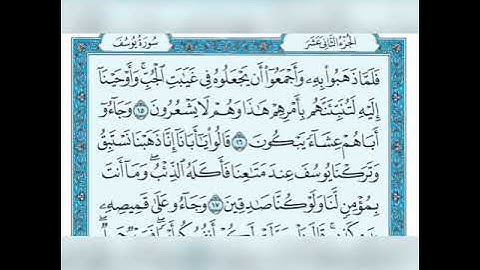 سُورَةُ يُوسُفَ
الجُزْءُ الثَّانِي عَشَرَ
فَلَمَّا ذَهَبُوا۟ بِهِۦ وَأَجْمَعُوٓا۟ أَن يَجْعَلُوهُ فِى غَيَٰبَتِ ٱلْجُبِّ ۚ وَأَوْحَيْنَآ
إِلَيْهِ لَتُنَبِّئَنَّهُم بِأَمْرِهِمْ هَٰذَا وَهُمْ لَا يَشْعُرُونَ ١٥ وَجَآءُوٓ
أَبَاهُمْ عِشَآءً يَبْكُونَ ١٦ قَالُوا۟ يَٰٓأَبَانَآ إِنَّا ذَهَبْنَا نَسْتَبِقُ
وَتَرَكْنَا يُوسُفَ عِندَ مَتَٰعِنَا فَأَكَلَهُ ٱلذِّئْبُ ۖ وَمَآ أَنتَ
بِمُؤْمِنٍ لَّنَا وَلَوْ كُنَّا صَٰدِقِينَ ١٧ وَجَآءُو عَلَىٰ قَمِيصِهِۦ